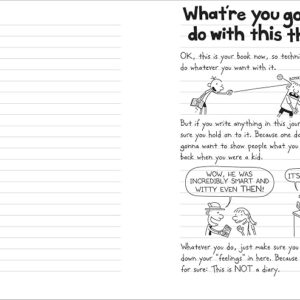 What're you go
do with this th
OK, this is your book now, so techni
do whatever you want with it.
But if you write anything in this jour
sure you hold on to it. Because one d
gonna want to show people what you
back when you were a kid.
WOW, HE WAS
INCREDIBLY SMART AND
WITTY EVEN THEN!
IT'S
Whatever you do, just make sure you
down your "feelings" in here. Because
for sure: This is NOT a diary.